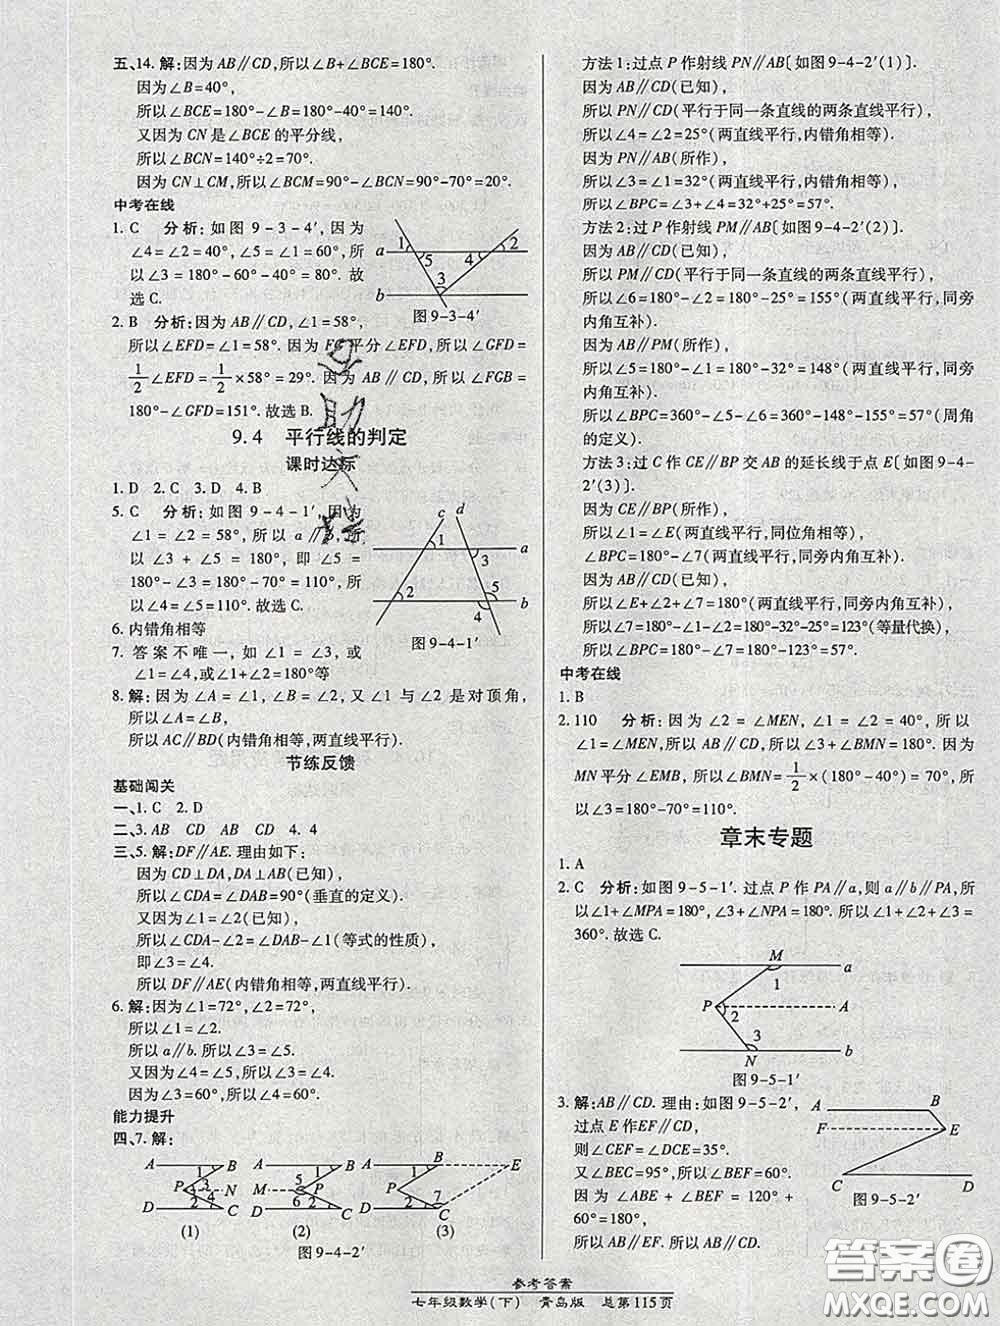 五、14. 解:因为AB∥CD,所以∠B+∠BCE=180°.
因为∠B=40°,
所以∠BCE=180°-∠B=180°-40°=140°.
又因为CN是∠BCE的平分线,
所以∠BCN=140°÷2=70°.
因为CN⊥CM,所以∠BCM=90°-∠BCN=90°-70°=20°.
中考在线
1. C 分析:如图9-3-4′,因为
∠4=∠2=40°,∠5=∠1=60°,所
以∠3=180°-60°-40°=80°. 故
选C.
a
b
1
5
4
2
3
图9-3-4′
2. B 分析:因为AB∥CD,∠1=58°,
所以∠EFD=∠1=58°. 因为FG平分∠EFD,所以∠GFD=
1/2∠EFD=1/2×58°=29°. 因为AB∥CD,所以∠FGB=
180°-∠GFD=151°. 故选B.
9.4 平行线的判定
课时达标
1. D 2. C 3. D 4. B
5. C 分析:如图9-4-1′,因为
∠1=∠2=58°,所以a∥b,所
以∠3+∠5=180°,即∠5=
180°-∠3=180°-70°=110°,所
以∠4=∠5=110°. 故选C.
c
d
1
3
a
2
5
4
b
图9-4-1′
6. 内错角相等
7. 答案不唯一,如∠1=∠3,或
∠1=∠4,或∠1+∠2=180°等
8. 解:因为∠A=∠1,∠B=∠2,又∠1与∠2是对顶角,
所以∠A=∠B,
所以AC∥BD(内错角相等,两直线平行).
节练反馈
基础闯关
一、1. C 2. D
二、3. AB CD AB CD 4. 4
三、5. 解:DF∥AE. 理由如下:
因为CD⊥DA,DA⊥AB(已知),
所以∠CDA=∠DAB=90°(垂直的定义).
又因为∠1=∠2(已知),
所以∠CDA-∠2=∠DAB-∠1(等式的性质),
即∠3=∠4.
所以DF∥AE(内错角相等,两直线平行).
6. 解:因为∠1=72°,∠2=72°,
所以∠1=∠2.
所以a∥b. 所以∠3=∠5.
又因为∠4=∠5,所以∠3=∠4.
因为∠3=60°,所以∠4=60°.
能力提升
四、7. 解:
A B P N D C 1 3 4 2
(1)
A B M P D C 1 5 6 2
(2)
A B E P D C 1 7 2
(3)
图9-4-2′
方法1:过点P作射线PN∥AB〔如图9-4-2′(1)〕.
因为AB∥CD(已知),
所以PN∥CD(平行于同一条直线的两条直线平行),
所以∠4=∠2=25°(两直线平行,内错角相等).
因为PN∥AB(所作),
所以∠3=∠1=32°(两直线平行,内错角相等),
所以∠BPC=∠3+∠4=32°+25°=57°.
方法2:过P作射线PM∥AB〔如图9-4-2′(2)〕.
因为AB∥CD(已知),
所以PM∥CD(平行于同一条直线的两条直线平行),
所以∠6=180°-∠2=180°-25°=155°(两直线平行,同旁
内角互补).
因为AB∥PM(所作),
所以∠5=180°-∠1=180°-32°=148°(两直线平行,同旁
内角互补).
所以∠BPC=360°-∠5-∠6=360°-148°-155°=57°(周角
的定义).
方法3:过C作CE∥BP交AB的延长线于点E〔如图9-4-
2′(3)〕.
因为CE∥BP(所作),
所以∠1=∠E(两直线平行,同位角相等).
∠BPC=180°-∠7(两直线平行,同旁内角互补).
因为AB∥CD(已知),
所以∠E+∠2+∠7=180°(两直线平行,同旁内角互补),
所以∠7=180°-∠1-∠2=180°-32°-25°=123°(等量代换),
所以∠BPC=180°-∠7=180°-123°=57°.
中考在线
1. B
2. 110 分析:因为∠2=∠MEN,∠1=∠2=40°,所以
∠1=∠MEN,所以AB∥CD,所以∠3+∠BMN=180°. 因为
MN平分∠EMB,所以∠BMN=1/2×(180°-40°)=70°,所
以∠3=180°-70°=110°.
章末专题
1. A
2. C 分析:如图9-5-1′. 过点P作PA∥a,则a∥b∥PA,所
以∠1+∠MPA=180°,∠3+∠NPA=180°. 所以∠1+∠2+∠3=
360°. 故选C.
M
a
1
P
2
A
3
N
b
图9-5-1′
3. 解:AB∥CD. 理由:如图9-5-2′,
过点E作EF∥CD,
则∠CEF=∠DCE=35°.
又∠BEC=95°,所以∠BEF=60°.
因为∠ABE+∠BEF=120°+
60°=180°,
所以AB∥EF. 所以AB∥CD.
A
B
F
E
C
D
图9-5-2′
参考答案
七年级数学(下) 青岛版 总第115页
答案圈
MXQE.COM